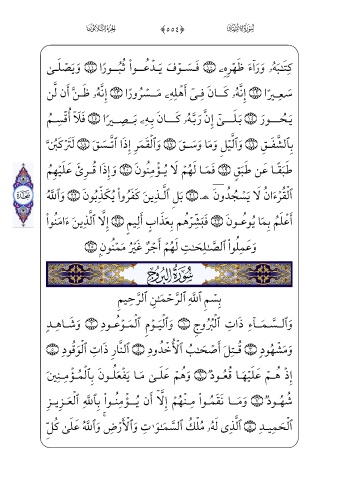 سورة الانشقاق ﴿٥٥٤﴾ الجزء الثلاثون
كِتَـٰبَهُۥ وَرَآءَ ظَهْرِهِۦ فَسَوْفَ يَدْعُوا۟ ثُبُورًا وَيَصْلَىٰ
سَعِيرًا إِنَّهُۥ كَانَ فِىٓ أَهْلِهِۦ مَسْرُورًا إِنَّهُۥ ظَنَّ أَن لَّن
يَحُورَ بَلَىٰٓ إِنَّ رَبَّهُۥ كَانَ بِهِۦ بَصِيرًا فَلَآ أُقْسِمُ
بِٱلشَّفَقِ وَٱلَّيْلِ وَمَا وَسَقَ وَٱلْقَمَرِ إِذَا ٱتَّسَقَ لَتَرْكَبُنَّ
طَبَقًا عَن طَبَقٍ فَمَا لَهُمْ لَا يُؤْمِنُونَ وَإِذَا قُرِئَ عَلَيْهِمُ
ٱلْقُرْءَانُ لَا يَسْجُدُونَ بَلِ ٱلَّذِينَ كَفَرُوا۟ يُكَذِّبُونَ وَٱللَّهُ
سجدة
أَعْلَمُ بِمَا يُوعُونَ فَبَشِّرْهُم بِعَذَابٍ أَلِيمٍ إِلَّا ٱلَّذِينَ ءَامَنُوا۟
وَعَمِلُوا۟ ٱلصَّـٰلِحَـٰتِ لَهُمْ أَجْرٌ غَيْرُ مَمْنُونٍۭ
سُورَةُ البُرُوجِ
بِسْمِ ٱللَّهِ ٱلرَّحْمَـٰنِ ٱلرَّحِيمِ
وَٱلسَّمَآءِ ذَاتِ ٱلْبُرُوجِ وَٱلْيَوْمِ ٱلْمَوْعُودِ وَشَاهِدٍ
وَمَشْهُودٍ قُتِلَ أَصْحَـٰبُ ٱلْأُخْدُودِ ٱلنَّارِ ذَاتِ ٱلْوَقُودِ
إِذْ هُمْ عَلَيْهَا قُعُودٌ وَهُمْ عَلَىٰ مَا يَفْعَلُونَ بِٱلْمُؤْمِنِينَ
شُهُودٌ وَمَا نَقَمُوا۟ مِنْهُمْ إِلَّآ أَن يُؤْمِنُوا۟ بِٱللَّهِ ٱلْعَزِيزِ
ٱلْحَمِيدِ ٱلَّذِى لَهُۥ مُلْكُ ٱلسَّمَـٰوَٰتِ وَٱلْأَرْضِ وَٱللَّهُ عَلَىٰ كُلِّ